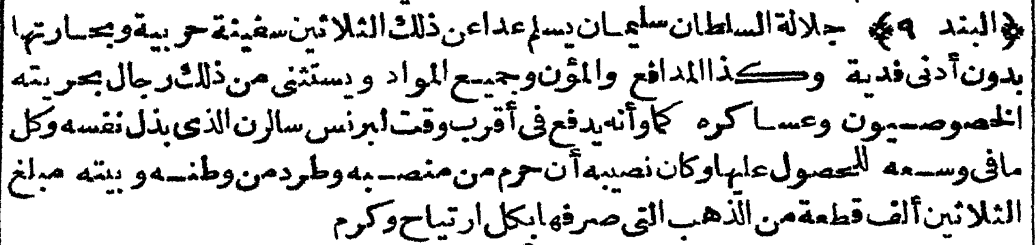 ﴿البند ٩﴾ جلالة السلطان سليمان يسلم عدا عن ذلك الثلاثين سفينة حربية وبحارتها
بدون أدنى فدية وكذا المدافع والمؤن وجميع المواد ويستثنى من ذلك رجال بحريته
الخصوصيون وعساكره كما وأنه يدفع فى أقرب وقت لبرنس سالرن الذى بذل نفسه وكل
ما فى وسعه للحصول عليها وكان نصيبه أن حرم من منصبه وطرد من وطنه وبيته مبلغ
الثلاثين ألف قطعة من الذهب التى صرفها بكل ارتياح وكرم